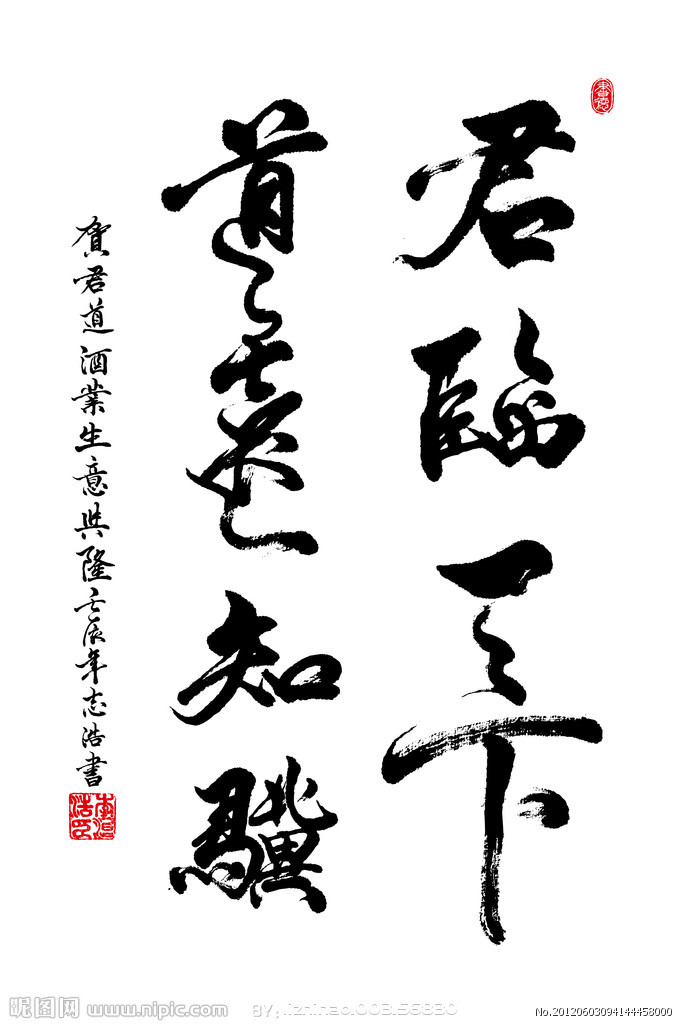 君臨天下
道遠知驥
賀君道酒業生意興隆壬辰年志浩書
昵图网 www.nipic.com
BY: lizhihao.003.56830
No.20120603094144458000